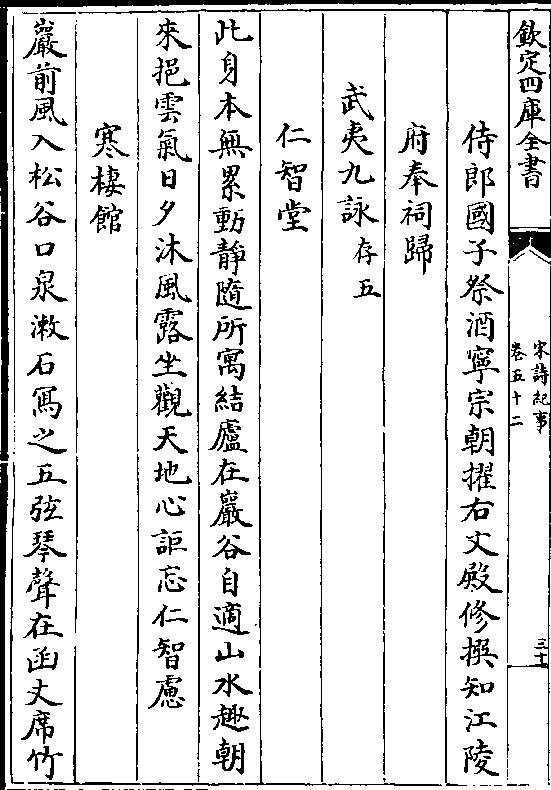 欽定四庫全書
宋詩紀事
卷五十二
三十
侍郎國子祭酒寧宗朝擢右文殿修撰知江陵
府奉祠歸
武夷九詠存五
仁智堂
此身本無累動靜隨所寓結廬在巖谷自適山水趣朝
來挹雲氣日夕沐風露坐觀天地心詎忘仁智慮
寒棲館
巖前風入松谷口泉漱石寫之五弦琴聲在函丈席竹